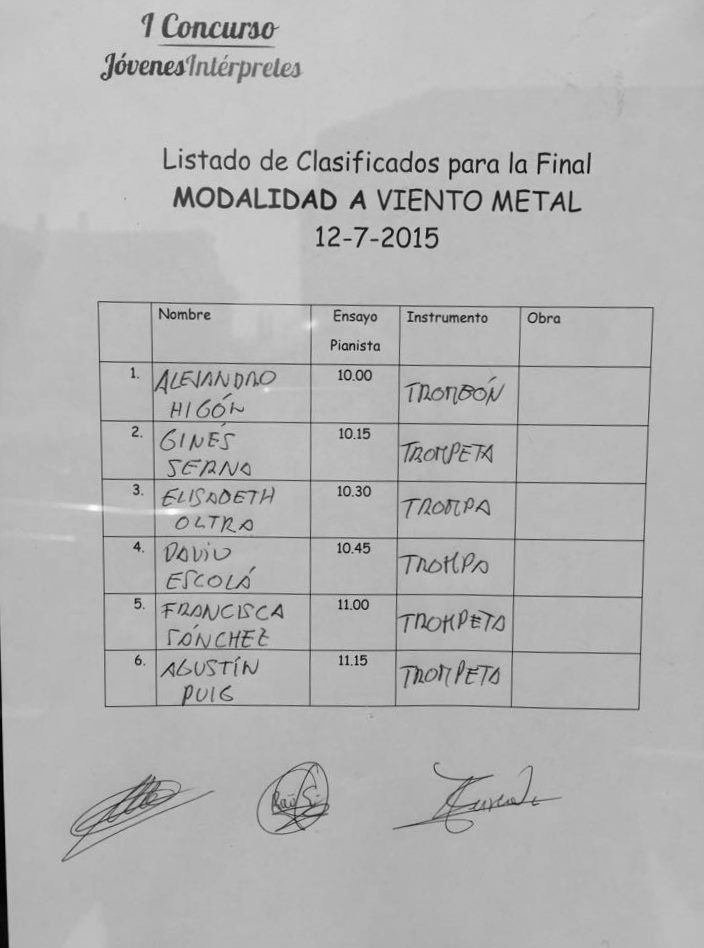 I Concurso
JóvenesIntérpretes
Listado de Clasificados para la Final
MODALIDAD A VIENTO METAL
12-7-2015
Nombre Ensayo Pianista Instrumento Obra
1. ALEJANDRO HIGÓN 10.00 TROMBÓN
2. GINÉS SERNA 10.15 TROMPETA
3. ELISABETH OLTRA 10.30 TROMPA
4. DAVID ESCOLÁ 10.45 TROMPA
5. FRANCISCA SÁNCHEZ 11.00 TROMPETA
6. AGUSTÍN PUIG 11.15 TROMPETA